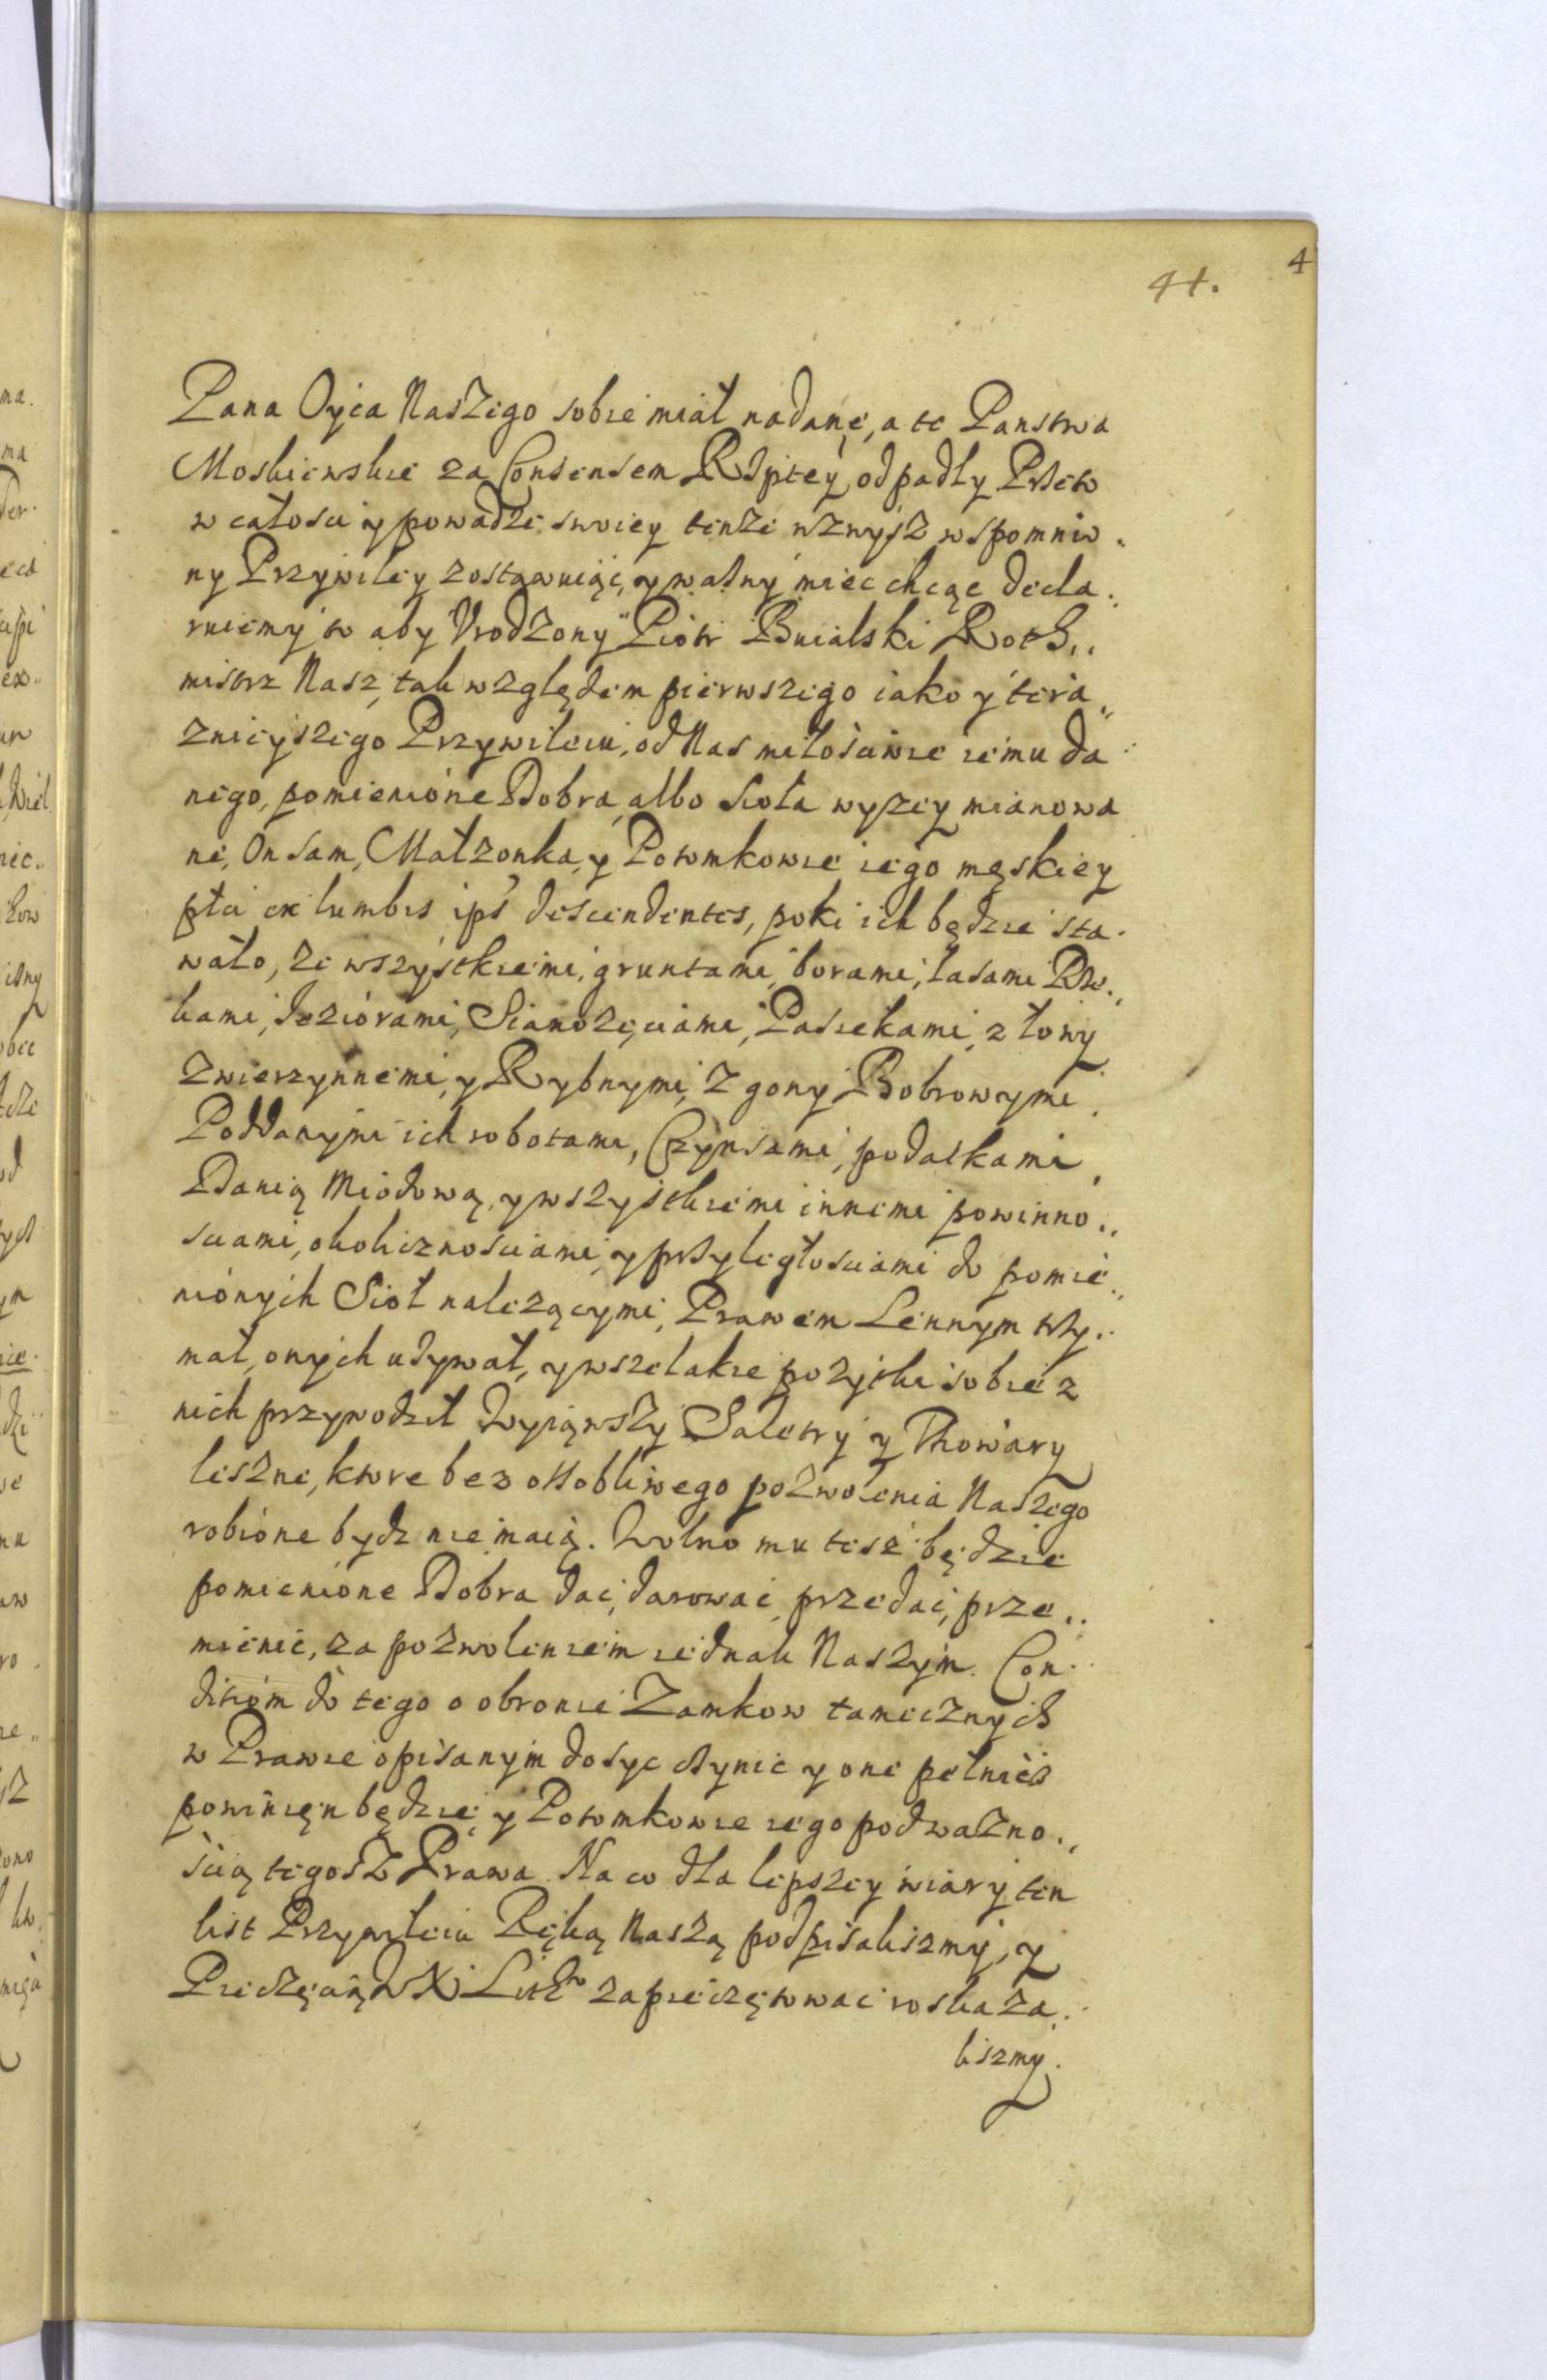 4
41.
Pana Oyca Naszego sobie miał nadane, a te Panstwa
Moskiewskie za Consensem Rzpltey odpadły Przeto
w całosci y powadze swoiey tenże wzwysz wspomnio„
ny Przywiley zostawuiąc, y ważny miec chcąc decla„
ruiemy to aby Urodzony Piotr Buialski Roth„
mistrz Nasz, tak względem pierwszego iako y tera„
znieyszego Przywileiu, od Nas miłościwie iemu da
nego, pomienione Dobra, albo Sioła wyzey mianowa
ne, On sam, Małzonka, y Potomkowie iego męskiey
płci ex lumbis ips descendentes, poki ich będzie sta„
wało, ze wszystkiemi gruntami, borami, lasami Rze„
kami, Jeziorami, Sianożęciami, Pasiekami, z łowy
zwierzynnemi, y Rybnymi, z gony Bobrowymi,
Poddanymi ich robotami, Czynsami, podatkami,
Danią Miodową, y wszystkiemi innemi powinno„
sciami, okolicznosciami, y przyległosciami do pomie„
nionych Sioł nalezącymi, Prawem Lennym trzy„
mał, onych używał, y wszelakie pozytki sobie z
nich przywodził Wyiąwszy Saletry y Thowary
leszne, ktore bez ossobliwego pozwolenia Naszego
robione bydz nie maią. Wolno mu tesz będzie
pomienione Dobra dac, darowac, przedac, prze„
mienic, za pozwoleniem iednak Naszym. Con„
ditiom do tego o obronie Zamkow tamecznych
w Prawie opisanym dosyc czynic y one pełnic
powinien będzie, y Potomkowie iego pod ważno„
ścią tegosz Prawa. Na co dla lepszey wiary ten
list Przywileiu Ręką Naszą podpisaliszmy, y
Pieczęcią WX Litt° zapieczętowac roskaza„
liszmy.